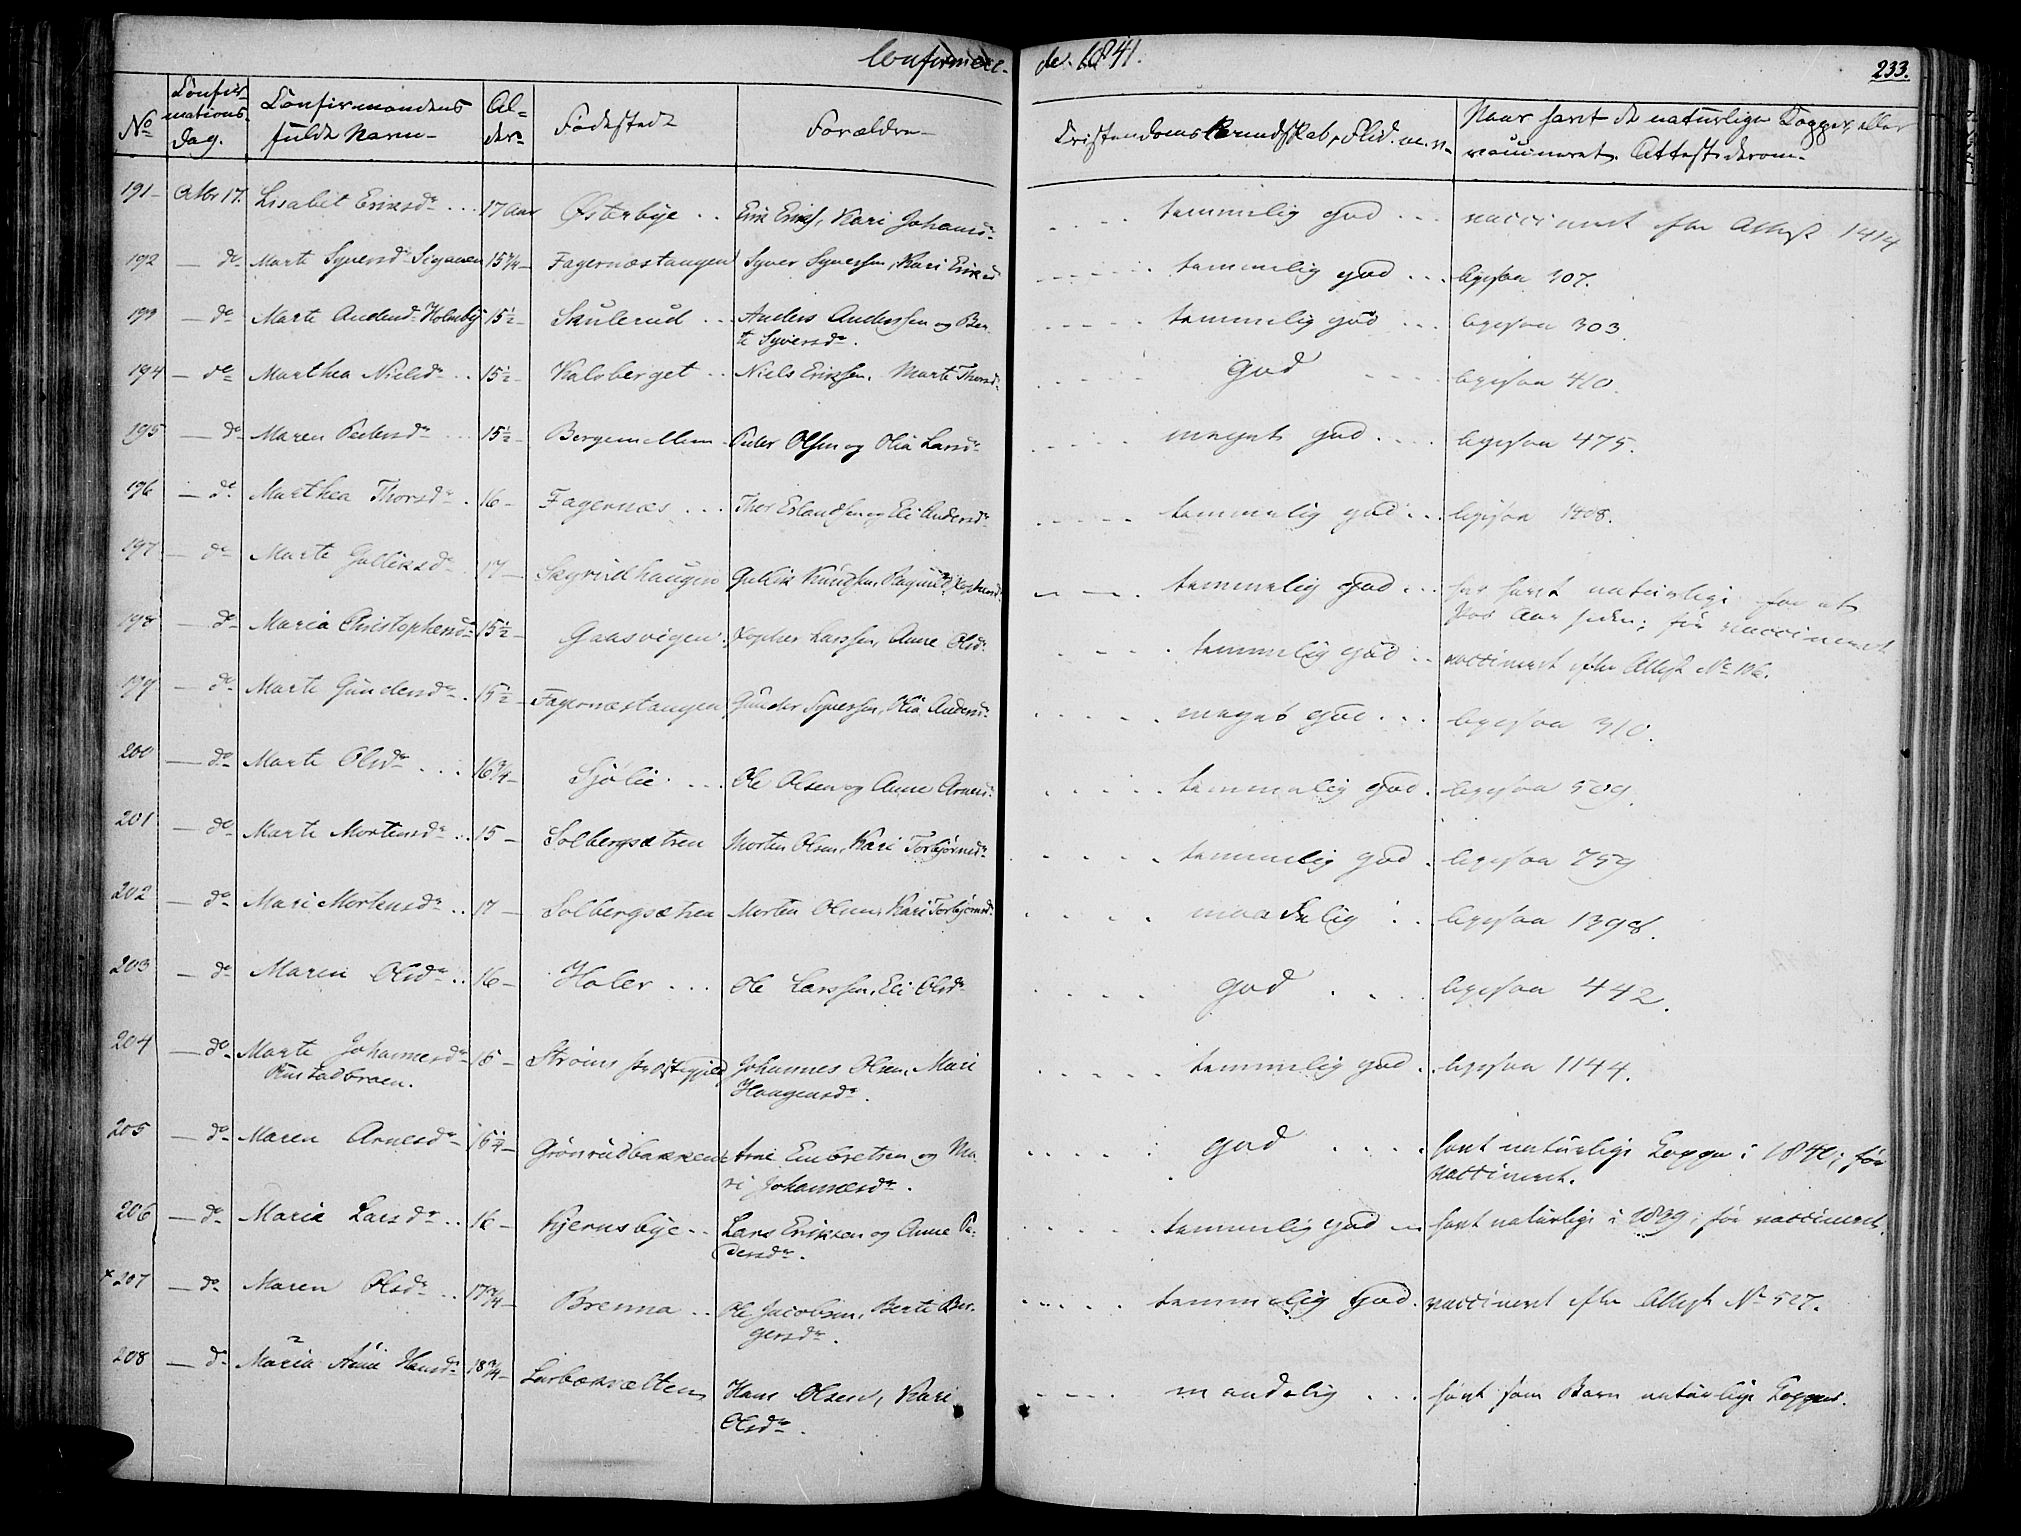 Confirmere-
de. 1841.
233.
No
Confir-
mations-
dag.
Confirmandens
fulde Navn-
Al-
der
Fødested
Forældre-
Cristendoms Kundskab, Flid. m. n-
Naar havt de naturlige Kopper, eller
vaccineret. Attest derom-
191- Octbr 17. Lisabet Eriksdr ... 17 Aar Østerbye .. Erik Eriks, Kari Johansd. .... temmelig god ... vaccineret efter Attest 1414
192 - do Marte Syversdr Siganen 15 3/4- Fagernæstangen Syver Syversen, Kari Eriksd .... temmelig god ... ligesaa 307.
193 - do Marte Andersdr Holmbye 15½- Skulerud .. Anders Anderssen og Ber
te Syversdr. .... temmelig god ... ligesaa 303
194 - do Marthea Nielsdr .. 15½- Kalvberget .. Niels Erikssen. Marte Thorsdr ..... god .... ligesaa 410.
195 - do Maren Pedersdr ... 15½- Bergemellem Peder Olsen og Olia Larsdr .... meget god .... ligesaa 475.
196 - do Marthea Thorsdr . 16- Fagernæs ... Thor Erlandsen og Eli Andersdr ..... temmelig god .. ligesaa 1408.
197 - do Marte Gulliksdr . 17- Skyrudhaugen Gullik Knudsen, Ragnild ..... temmelig god .. har havt naturlige for et
Par Aar siden; før vaccineret
198 - do Maria Christophersdr 15½- Gaasvigen Xtopher Larssen, Anne Olsdr .... temmelig god .. vaccineret efter Attest No 106.
199 - do Marte Gundersdr . 15½- Fagernæstangen Gunder Syversen, Olia Andersdr ..... meget god ... ligesaa 310.
200 - do Marte Olsdr .... 16 3/4- Sjølie .... Ole Olsen og Anne Arnesd. ..... temmelig god . ligesaa 509.
201 - do Marte Mortensdr .. 15- Solbergsætren Morten Olsen, Kari Torbjørnsdr .... temmelig god . ligesaa 759
202 - do Mari Mortensdr .. 17- Solbergsætren Morten Olsen, Kari Torbjørnsdr .... maadelig .. ligesaa 1398.
203 - do Maren Olsdr .. 16- Holer ... Ole Larssen, Eli Olsdr .... god .... ligesaa 442.
204 - do Marte Johannesdr
Rustadbraen. 16- Strøms Præstegjeld Johannes Olsen, Mari
Haagensdr. ..... temmelig god . ligesaa 1144.
205 - do Maren Arnesdr- 15¼- Grønrudbakken Arne Embretsen og Ma-
ri Johannesdr. ..... god .... havt naturlige Kopper i 1840; før
vaccineret.
206 - do Maria Larsdr .. 16- Kjernsbye .. Lars Eriksen og Anne Pe-
dersdr. .... temmelig god - havt naturlige i 1839; før vaccineret.
x 207 - do Maren Olsdr .. 17 3/4- Brenna .. Ole Jacobsen, Berte Bir-
gersdr. ..... temmelig god. vaccineret efter Attest No 527.
208 - do Maria Anne Hansdr 18 3/4- Hans Olsen, Kari
Olsdr. .... maadelig ... havt som Barn naturlige Kopper.